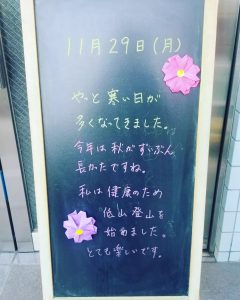 11月29日(月)
やっと寒い日が
多くなってきました。
今年は秋がずいぶん
長かったですね。
私は健康のため
低山登山を
始めました。
とても楽しいです。